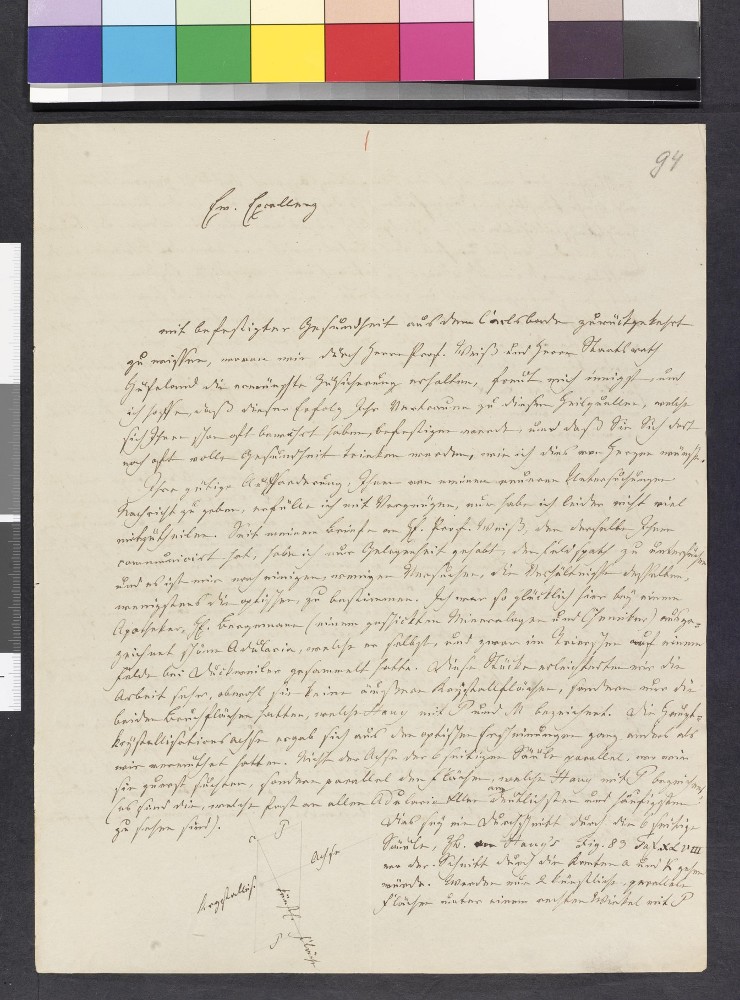 94
Ew. Excellenz
mit befestigter Gesundheit aus dem Carlsbade zurückgekehrt
zu wissen, wovon mir durch Herrn Prof. Weiß und Herrn Staatsrath
Hufeland die erwünschte Zusicherung erhalten, freut mich innigst, und
ich hoffe, daß dieser Erfolg Ihr Vertrauen zu diesen Heilquellen, welche
sich Ihnen schon oft bewährt haben, befestigen werde, und daß Sie Sich dort
noch oft volle Gesundheit trinken werden, wie ich dies von Herzen wünsche.
Ihre gütige Aufforderung, Ihnen von meinen neueren Untersuchungen
Nachricht zu geben, erfülle ich mit Vergnügen, nur habe ich leider nicht viel
mitzutheilen. Seit meinem Briefe an H. Prof. Weiß, den derselbe Ihnen
communicirt hat, habe ich nur Gelegenheit gehabt, den Feldspath zu untersuchen
und es ist mir nach einigen, wenigen Versuchen, die Verhältnisse desselben,
wenigstens die optischen, zu bestimmen. Ich war so glücklich hier bey einem
Apotheker, H. Bergemann (einem geschickten Mineralogen und Chemiker) ausge-
zeichnet schöne Adularia, welche er selbst, und zwar im Trierschen auf einem
Felde bei Dockweiler gesammelt hatte. Diese Stücke erleichterten mir die
Arbeit sehr, obwohl sie keine äußeren Krystallflächen, sondern nur die
beiden Bruchflächen hatten, welche Hauy mit P und M bezeichnet. Die Haupt-
krystallisationsachse ergab sich aus den optischen Erscheinungen ganz anders als
wir vermuthet hatten. Nicht der Achse der 6 seitigen Säule parallel, wo wir
sie zuerst suchten, sondern parallel den Flächen, welche Hauy mit P bezeichnet
(es sind die, welche fast an allen Adularia Allen am deutlichsten und häufigsten
zu sehen sind).
Dies sey ein Durchschnitt durch die 6 seitige
Säule, H. Hauy's Fig. 83 Taf. XLVIII
wo der Schnitt durch die Kanten a und k gehen
würde. Werden nun 2 künstliche, parallele
Flächen unter einem rechten Winkel mit P
c P
Achse
Krystallis.
künstl. Fläche
P